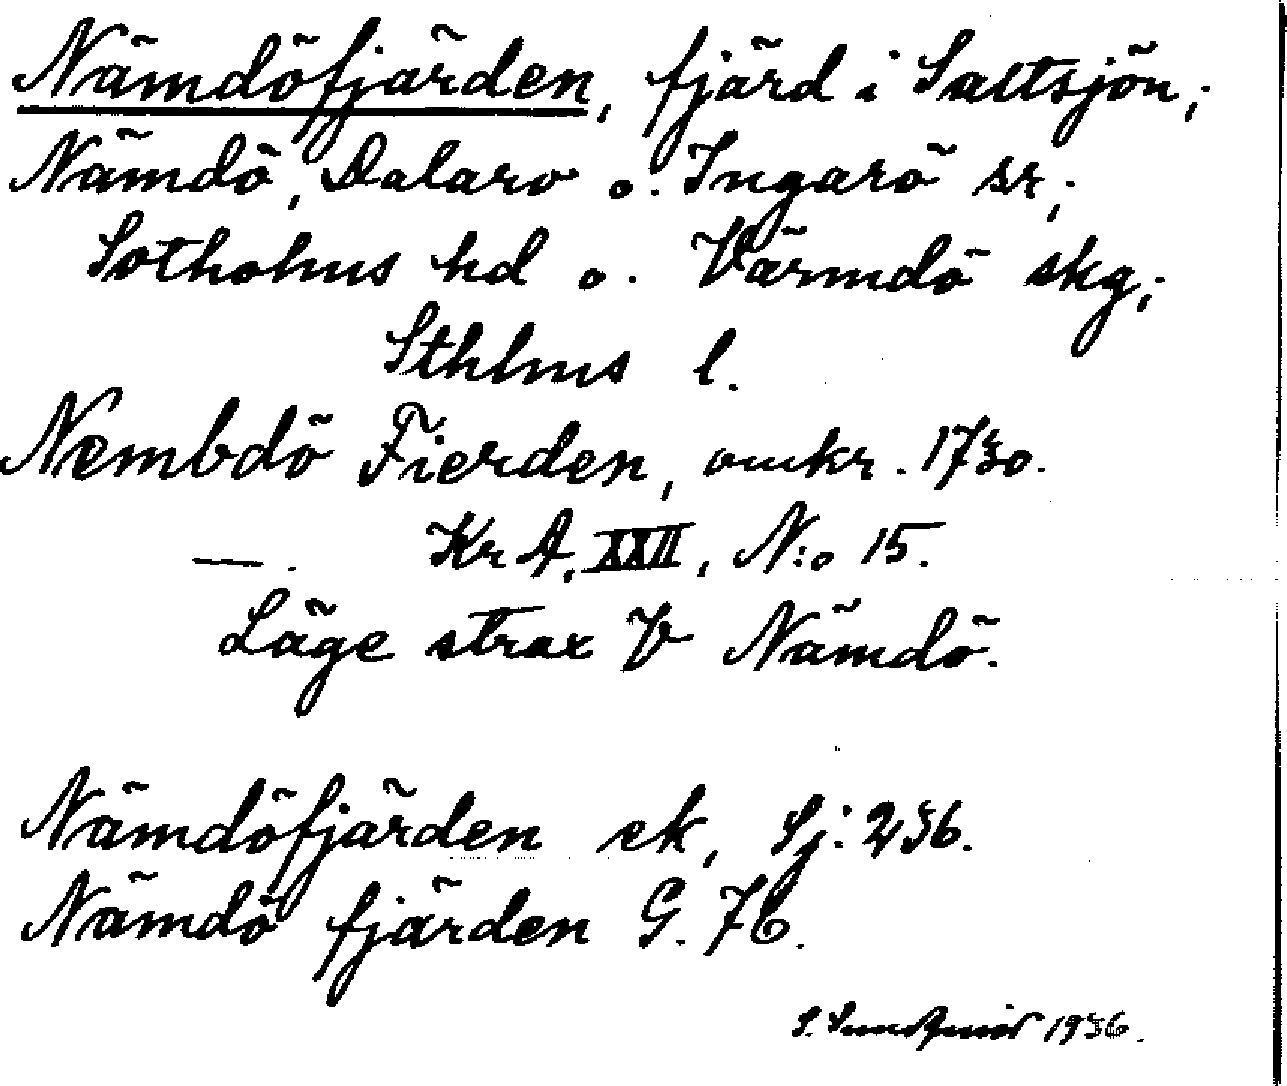 Nämdöfjärden, fjärd i Saltsjön;
Nämdö, Dalarö o. Ingarö sr,;
Sotholms hd o. Värmdö skg,;
Sthlms l.
Nembdö Fierden, omkr. 1730.
—. KrA, XXII, N:o 15.
Läge strax V Nämdö.
Nämdöfjärden ek, Sj: 236.
Nämdö fjärden G. 76.
S. 1936.